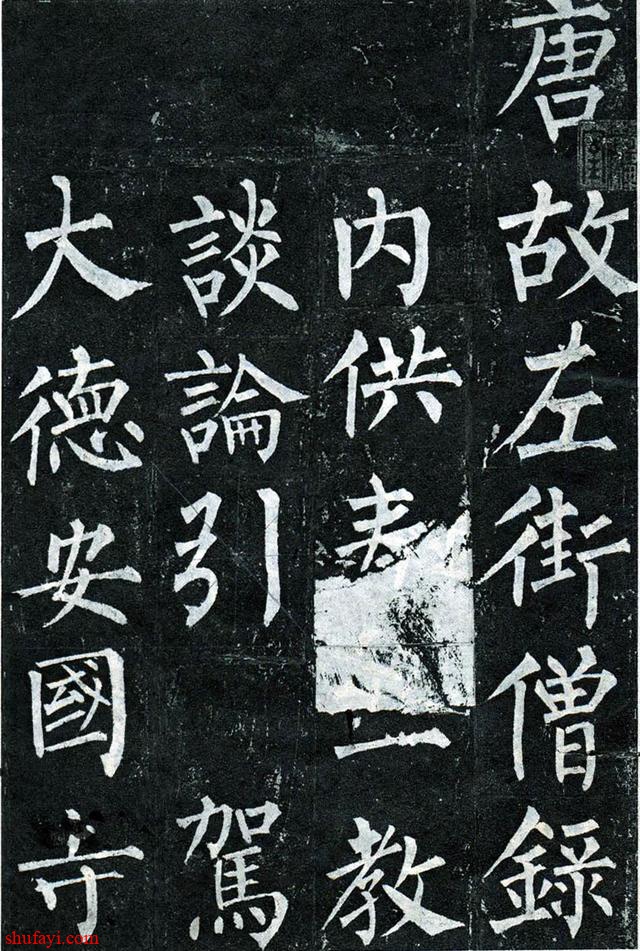 唐故左街僧錄
内供奉三教
談論引 駕
大德安國寺
shufayi.com